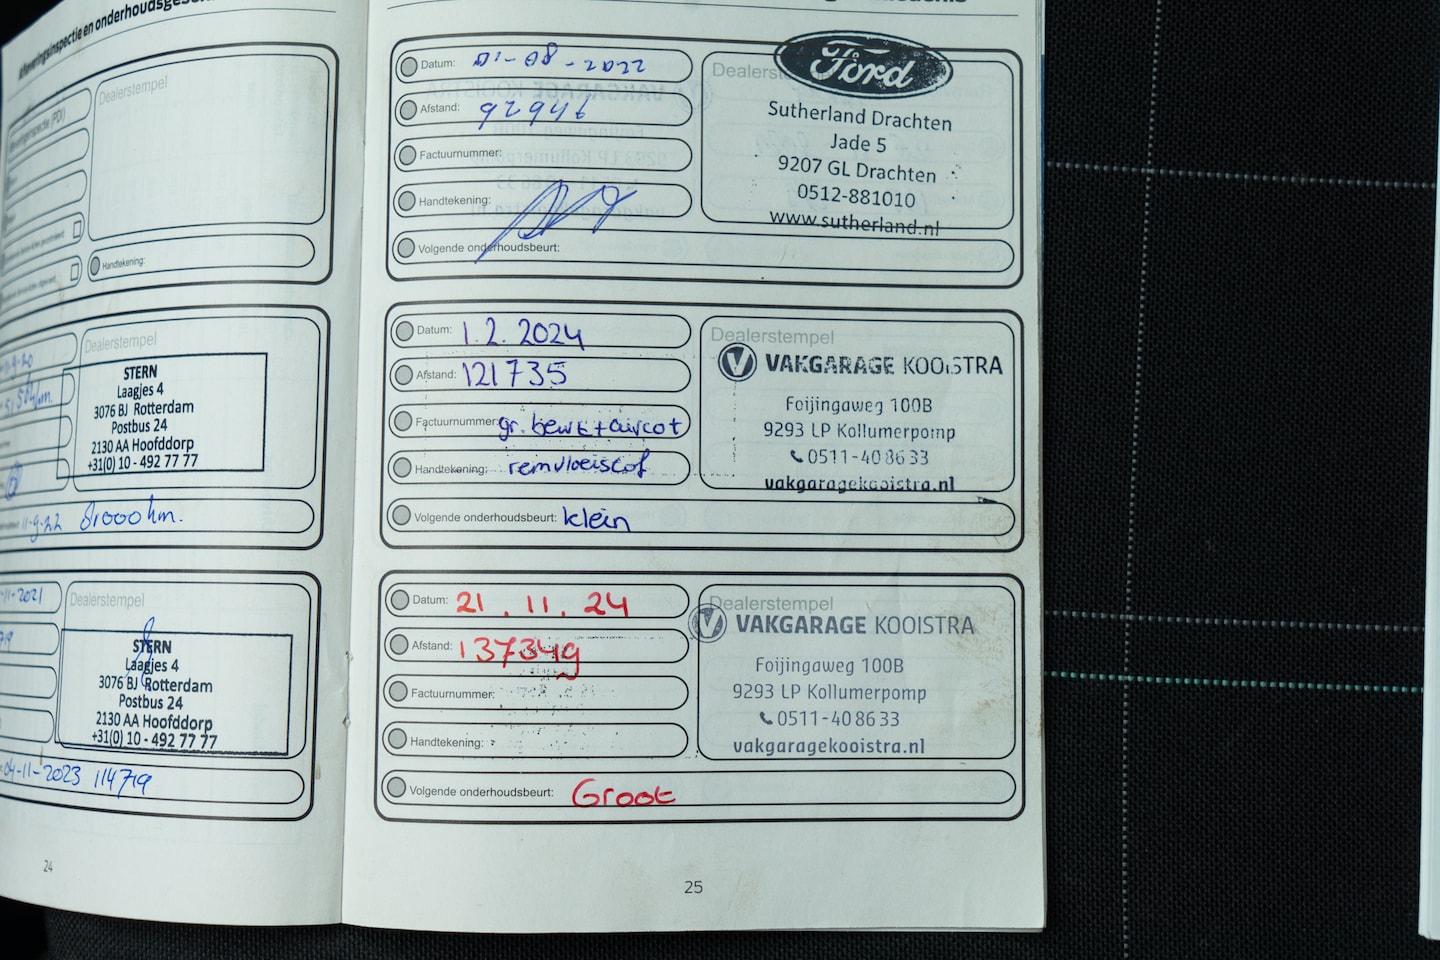 Afleveringsinspectie en
Dealerstempel
Handtekening:
Dealerstempel
STERN
Laagjes 4
3076 BJ Rotterdam
Postbus 24
2130 AA Hoofddorp
+31(0) 10 - 492 77 77
11-9-22 81000 km.
Dealerstempel
STERN
Laagjes 4
3076 BJ Rotterdam
Postbus 24
2130 AA Hoofddorp
+31(0) 10 - 492 77 77
04-11-2023 114719
24
Datum: 01-08-2022
Afstand: 92946
Factuurnummer:
Handtekening:
Volgende onderhoudsbeurt:
Dealerstempel
Ford
Sutherland Drachten
Jade 5
9207 GL Drachten
0512-881010
www.sutherland.nl
Datum: 1.2.2024
Afstand: 121735
Factuurnummer: gr. beurt + aircot
Handtekening: remvloeistof
Volgende onderhoudsbeurt: klein
Dealerstempel
VAKGARAGE KOOISTRA
Foijingaweg 100B
9293 LP Kollumerpomp
0511-40 86 33
vakgaragekooistra.nl
Datum: 21.11.24
Afstand: 137349
Factuurnummer:
Handtekening:
Volgende onderhoudsbeurt: Groot
Dealerstempel
VAKGARAGE KOOISTRA
Foijingaweg 100B
9293 LP Kollumerpomp
0511-40 86 33
vakgaragekooistra.nl
25